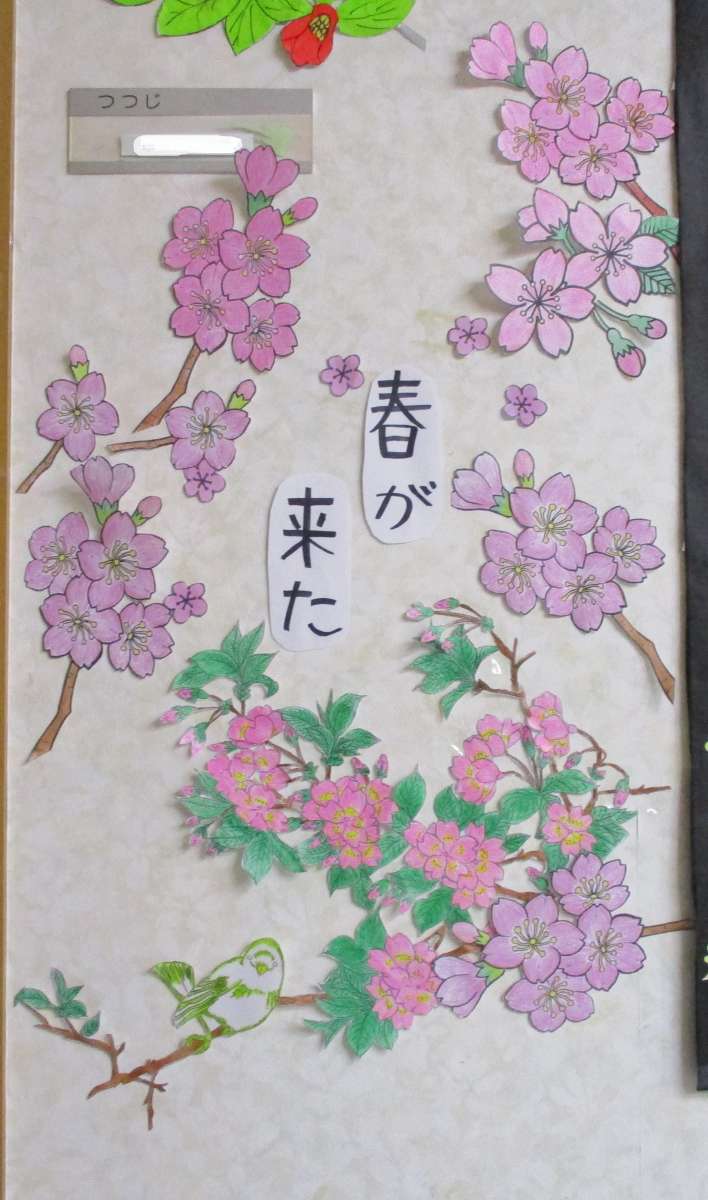 つつじ
春が
来た